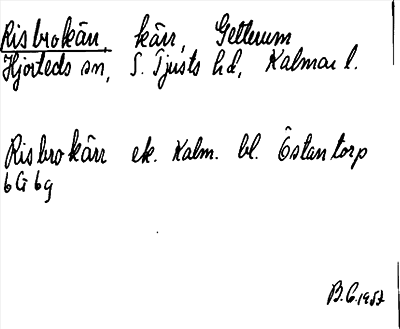 Risbrokärr, kärr, Getterum
Hjorteds sn, S. Tjusts hd, Kalmar l.
Risbrokärr ek. Kalm. bl. Östantorp
6G 6g
B.G. 1957